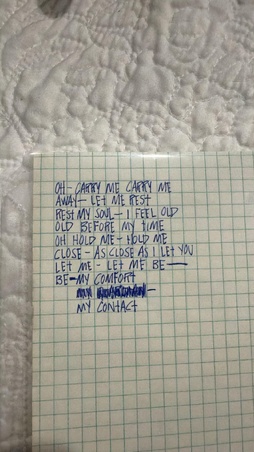 OH - CARRY ME CARRY ME
AWAY - LET ME REST
REST MY SOUL - I FEEL OLD
OLD BEFORE MY TIME
OH HOLD ME - HOLD ME
CLOSE - AS CLOSE AS I LET YOU
LET ME - LET ME BE —
BE - MY COMFORT
MY CONTACT